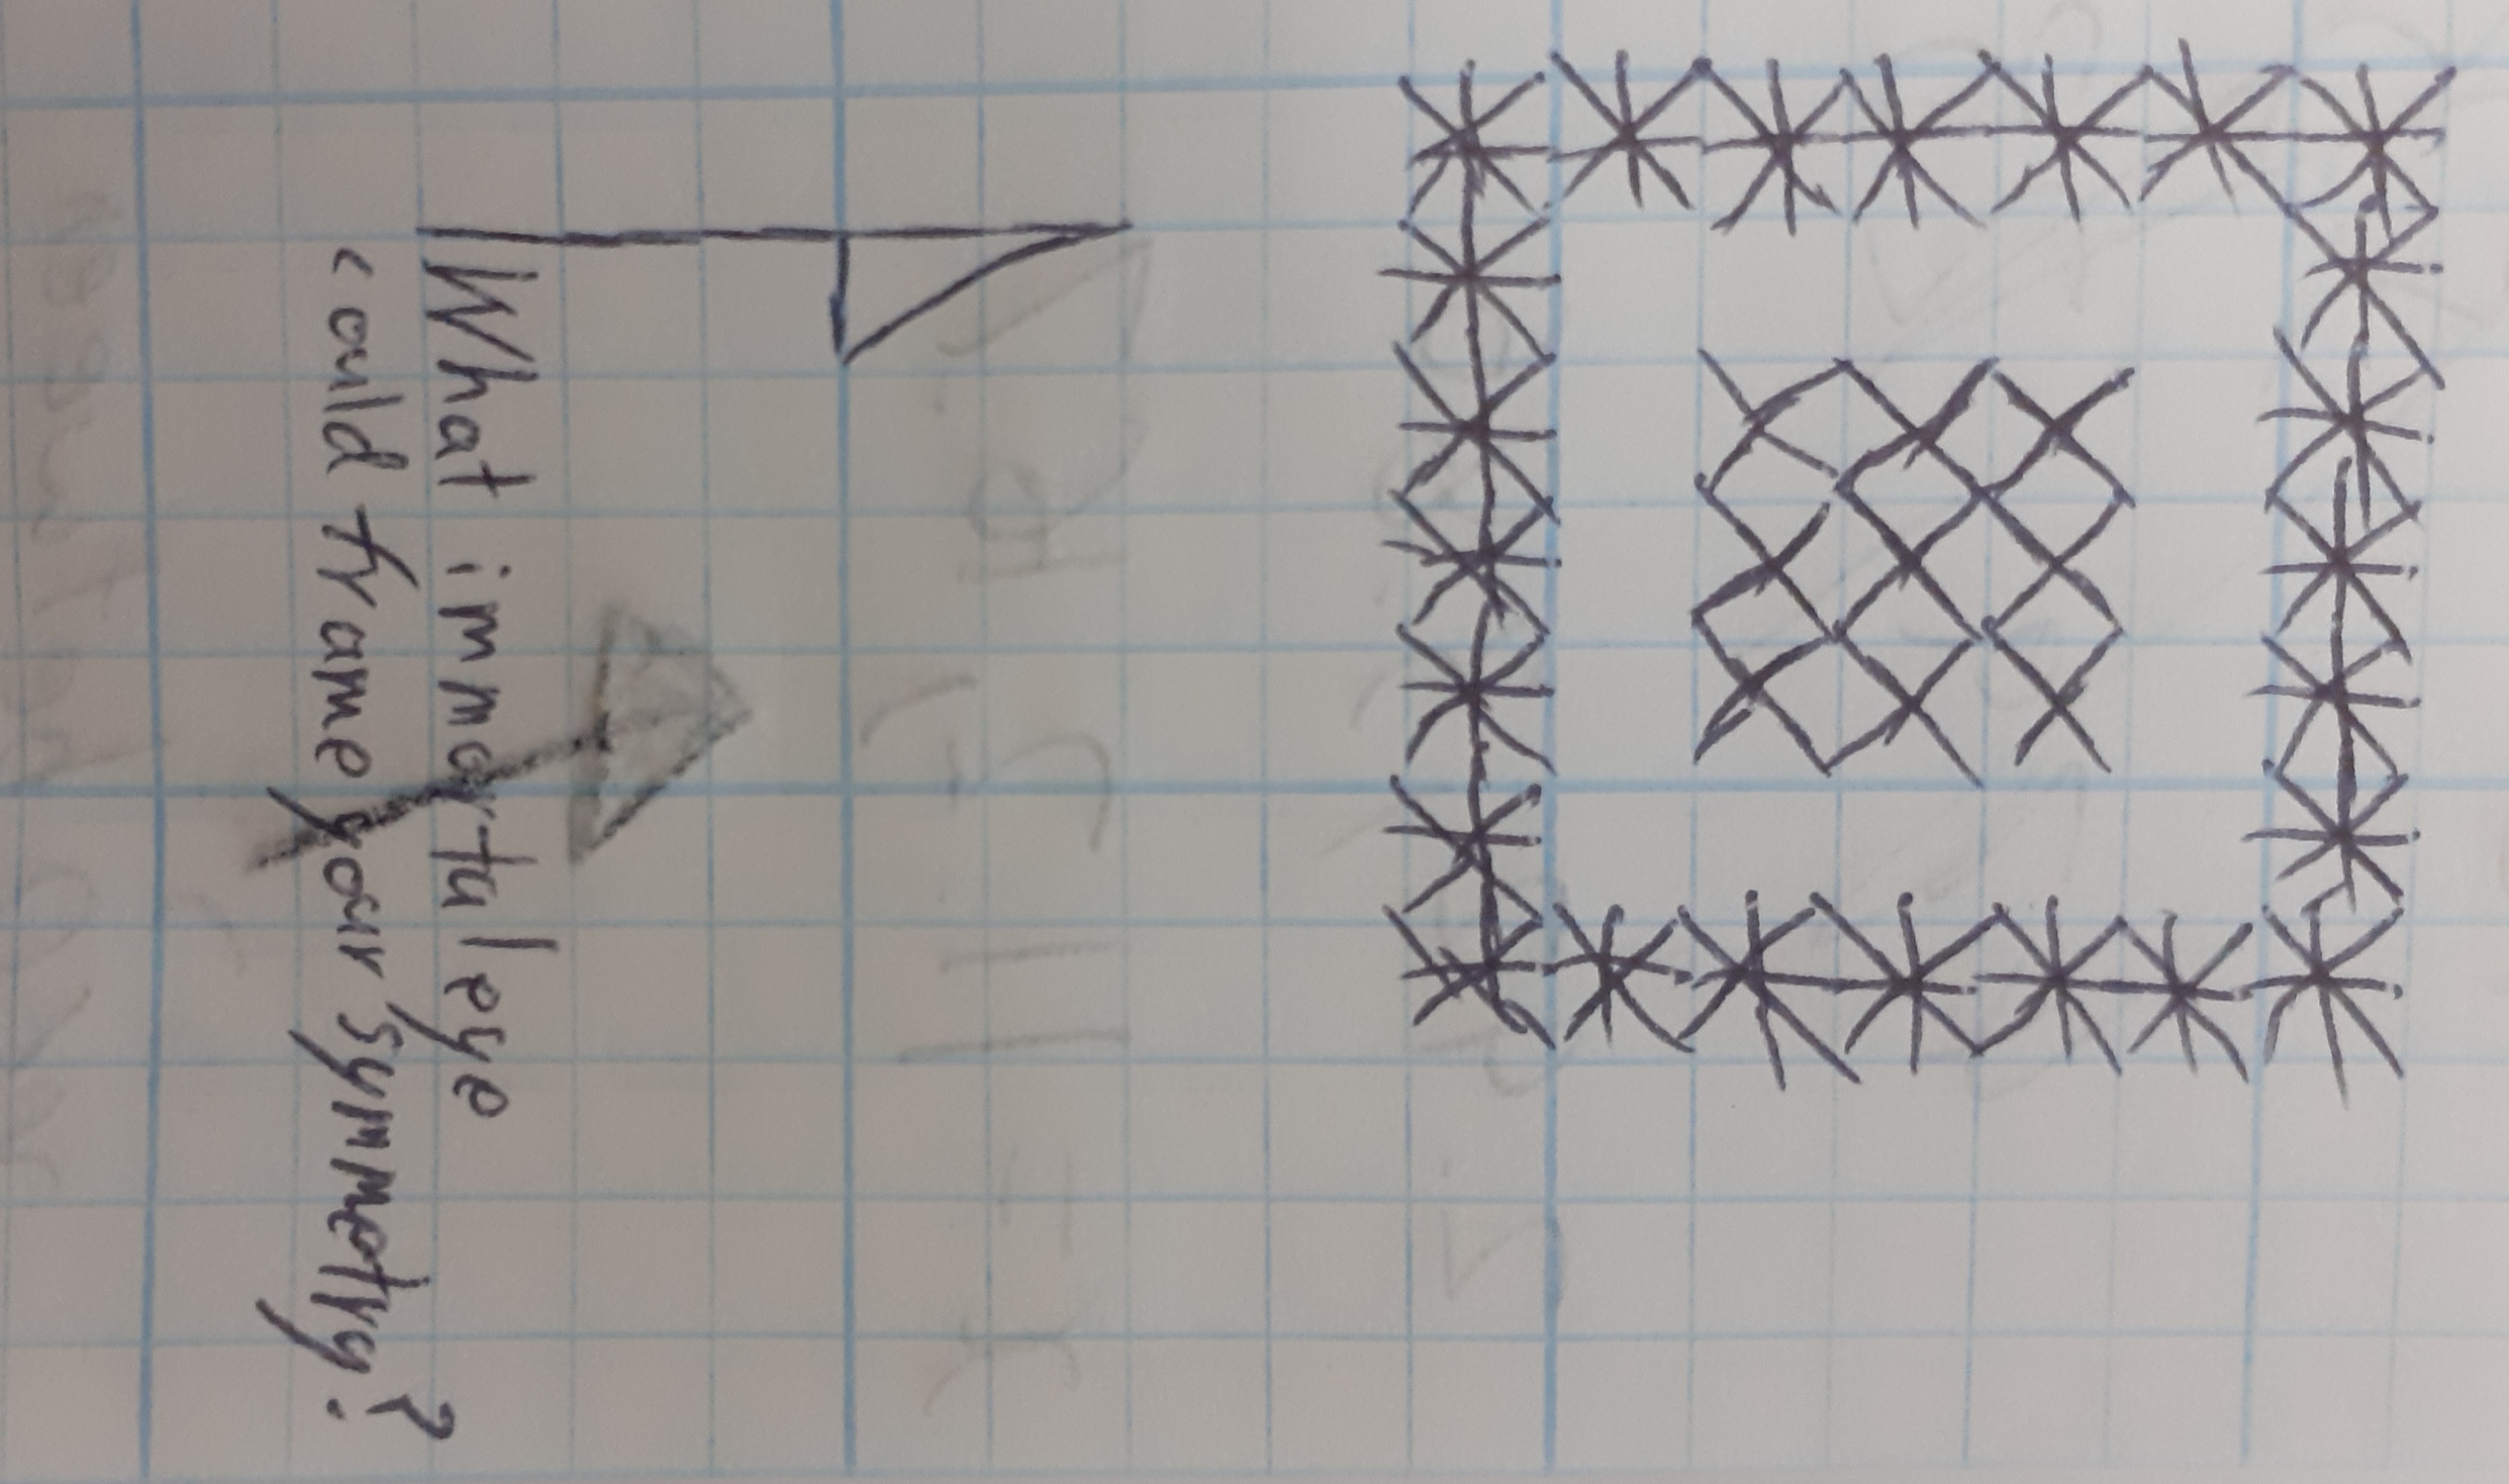 What immortal eye
could frame your symmetry?